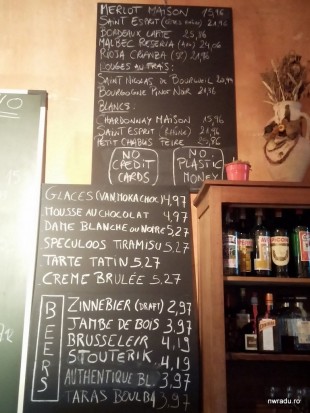 MERLOT MAISON 15,96
SAINT ESPRIT (CÔTES RHÔNE) 21,96
BORDEAUX LAFITE 25,96
MALBEC RESERVA (ARG) 24,06
RIOJA CRIANZA (SP) 21,96
ROUGES AU FRAIS:
SAINT NICOLAS DE BOURGUEIL 20,94
BOURGOGNE PINOT NOIR 21,96
BLANCS:
CHARDONNAY MAISON 15,96
SAINT ESPRIT (RHÔNE) 21,96
PETIT CHABLIS FEBRE 25,86
NO
CREDIT
CARDS
NO
PLASTIC
MONEY
GLACES (VAN, MOKA, CHOC) 4,97
MOUSSE AU CHOCOLAT 4,97
DAME BLANCHE OU NOIRE 5,27
SPECULOOS TIRAMISU 5,27
TARTE TATIN 5.27
CREME BRULÉE 5.27
BEERS
ZINNEBIER (DRAFT) 2,97
JAMBE DE BOIS 3,97
BRUSSELEIR 4,19
STOUTERIK 4,19
AUTHENTIQUE BL. 3,97
TARAS BOULBA 3,97
nwradu.ro